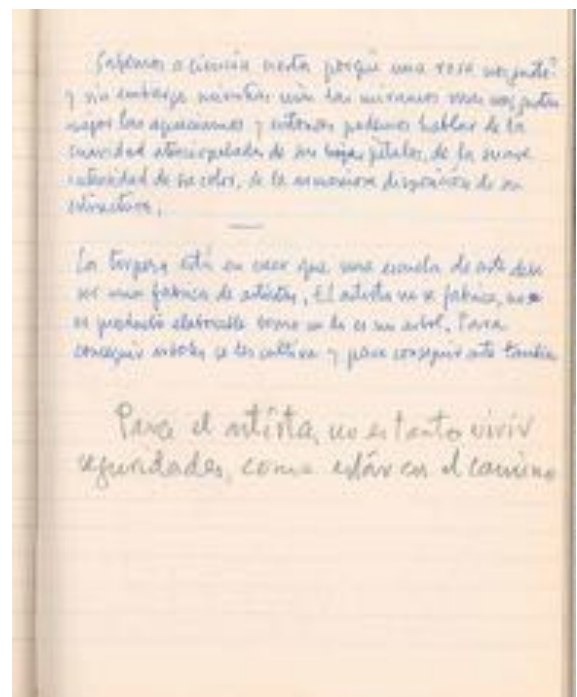 Sabemos a ciencia cierta porqué una rosa nos gusta?
y sin embargo mientras más las miramos más nos gustan
mejor las apreciamos y entonces podemos hablar de la
suavidad aterciopelada de sus hojas, pétalos, de la suave
intensidad de su color, de la armoniosa disposición de su
estructura.
La torpeza está en creer que una escuela de arte debe
ser una fábrica de artistas. El artista no se fabrica, no
es producto elaborable como no lo es un arbol. Para
conseguir arboles se les cultiva y para conseguir arte también
Para el artista, no es tanto vivir
seguridades, como estár en el camino